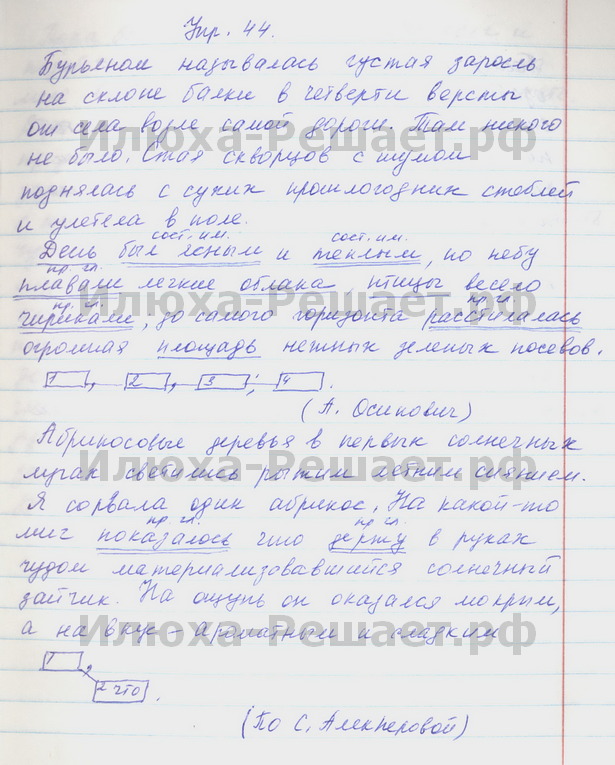 Упр. 44.
Бурьяном называлась густая заросль
на склоне балки в четверти версты
от села возле самой дороги. Там никого
не было. Стая скворцов с шумом
поднялась с сухих прошлогодних стеблей
и улетела в поле.
сост. им. сост. им.
День был ясным и теплым, но небу
пр. гл.
плавали легкие облака, птицы весело
пр. гл. пр. гл.
чирикали; до самого горизонта расстилалась
огромная площадь нежных зеленых посевов.
1, 2, 3; 4.
(А. Осипович)
Абрикосовые деревья в первых солнечных
лучах светились рыжим летним сиянием.
Я сорвала один абрикос. На какой-то
пр. гл. пр. гл.
миг показалось что держу в руках
чудом материализовавшийся солнечный
зайчик. На ощупь он оказался мокрым,
а на вкус - ароматным и сладким
1,
2 что.
(По С. Алекперовой)
Илюха-Решает.рф
Илюха-Решает.рф
Илюха-Решает.рф
Илюха-Решает.рф